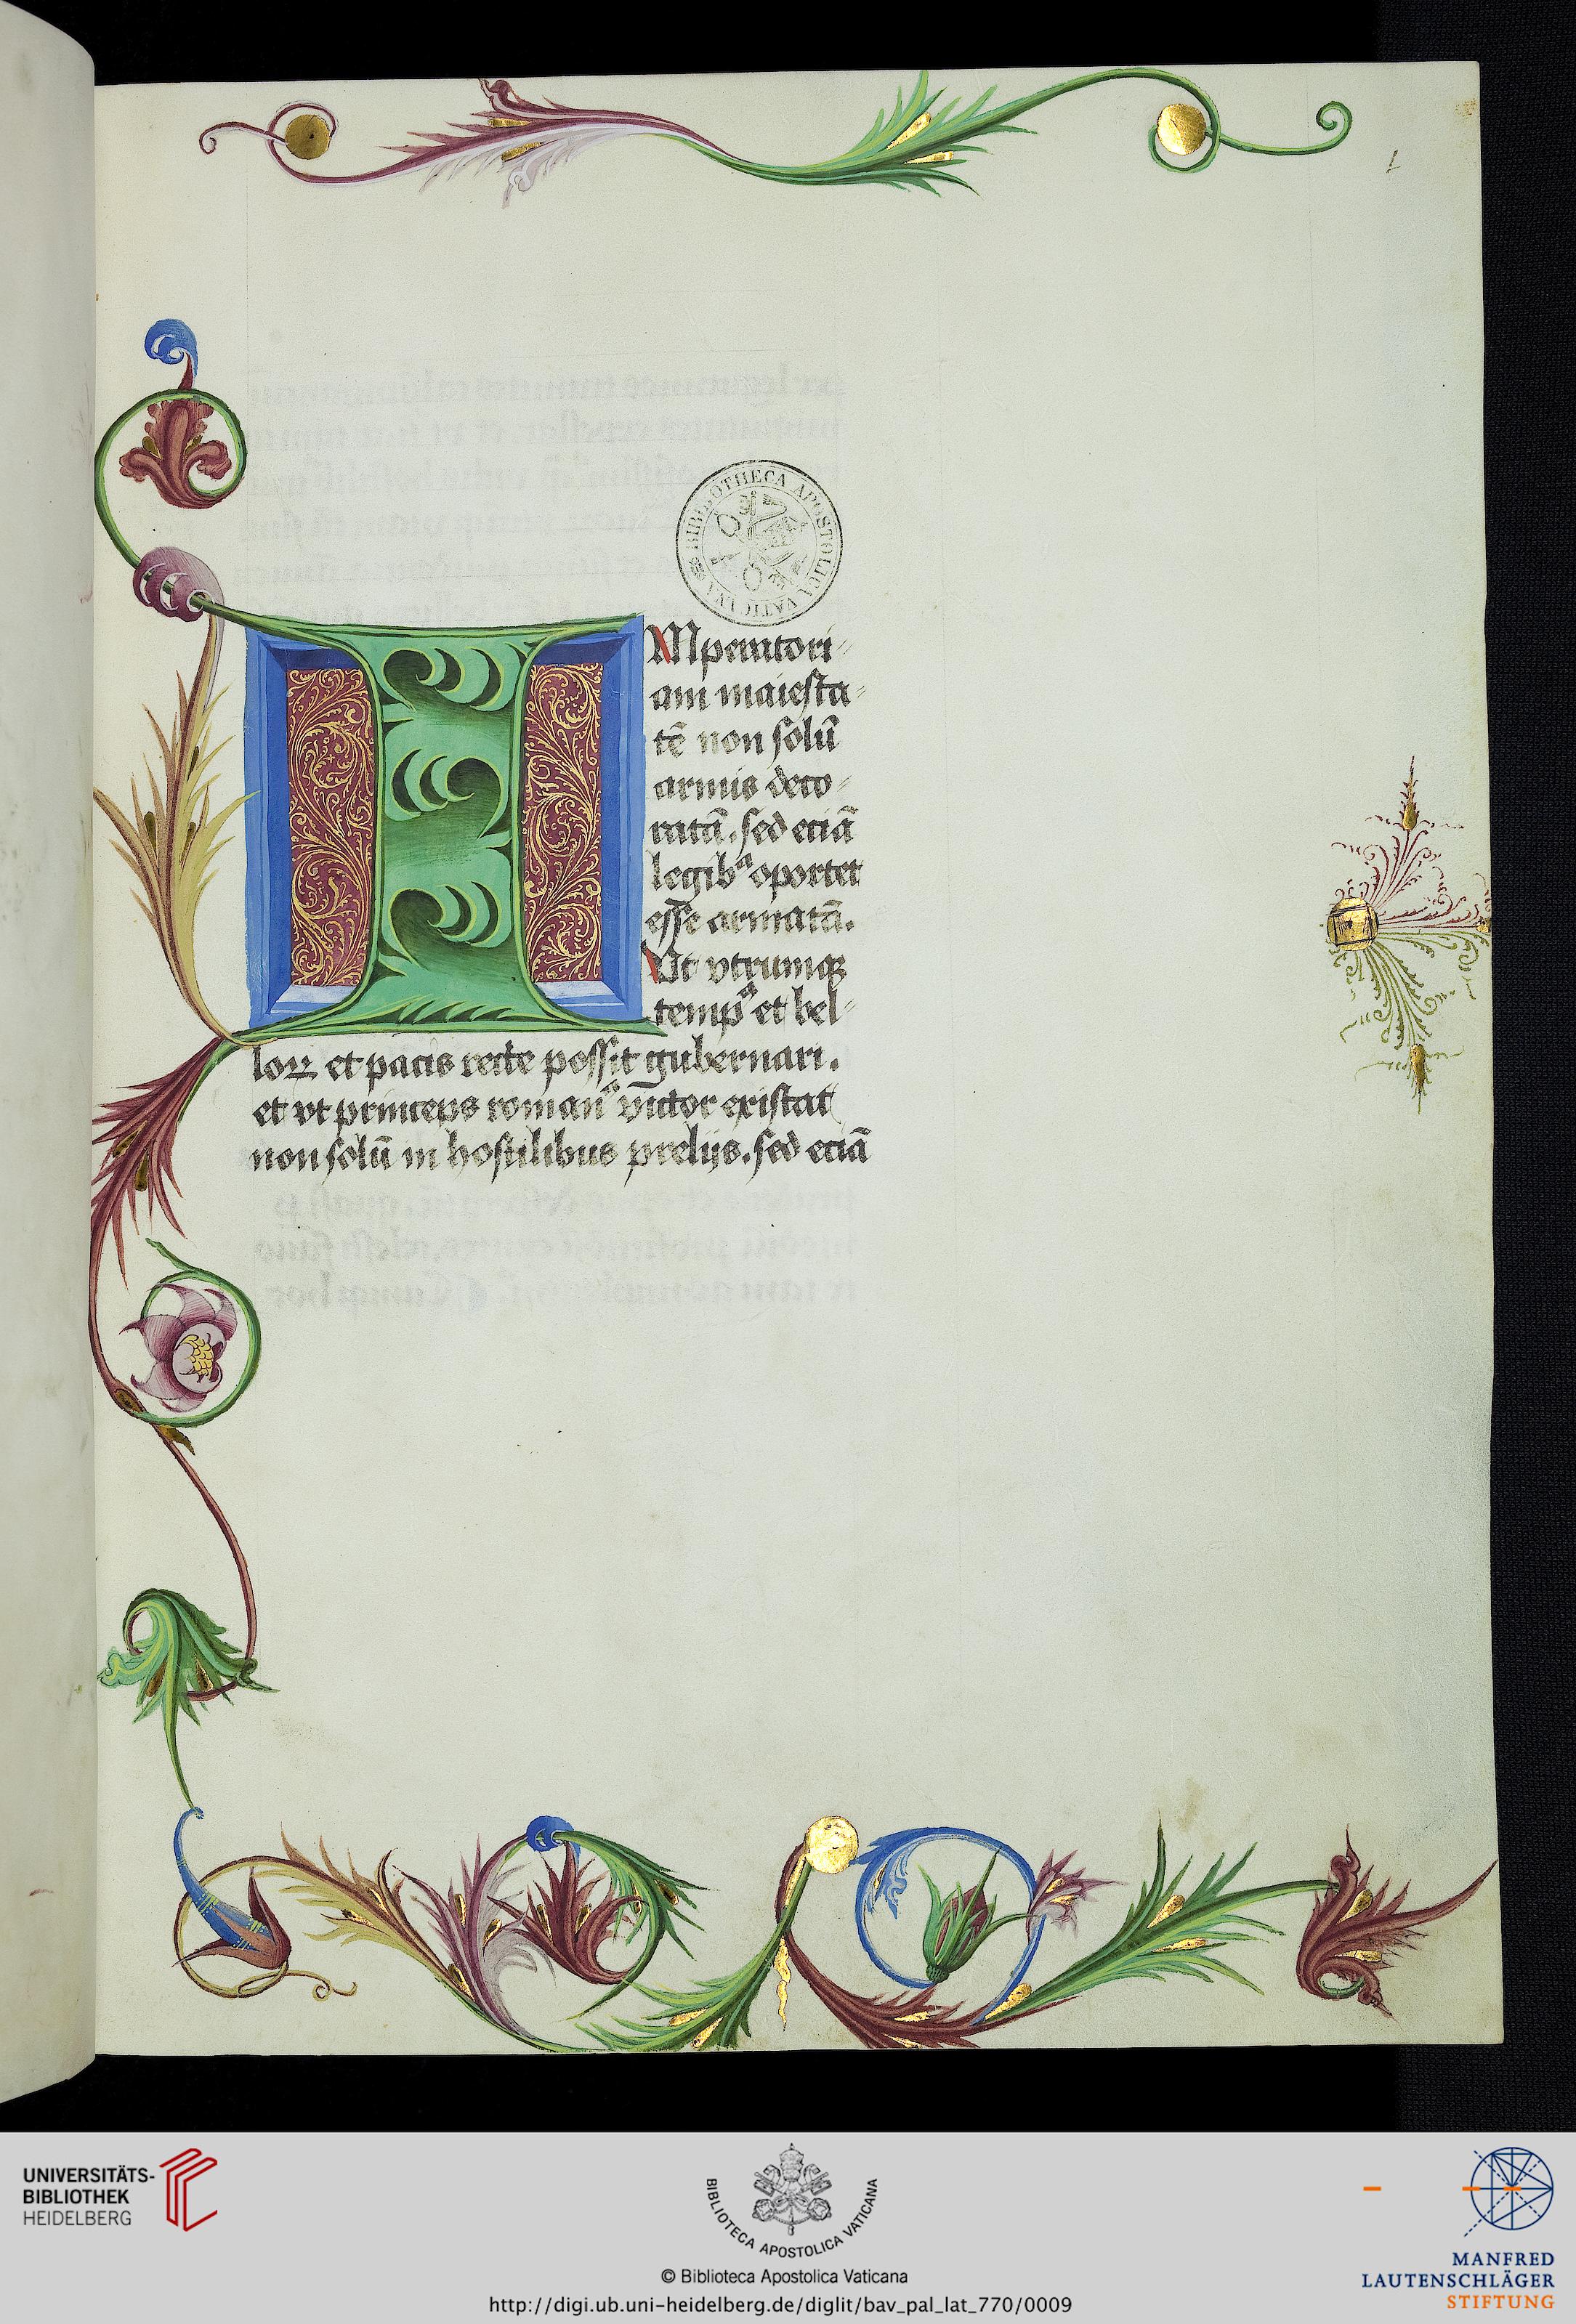 1
BIBLIOTHECA APOSTOLICA VATICANA
IMperatori-
am maiesta-
tē non solū
armis deco-
ratā. sed eciā
legibꝰ oportet
esse armatā.
Ut vtrumqꝫ
tempꝰ et bel-
loꝝ et pacis recte possit gubernari.
et vt princeps romanꝰ victor existat
non solū in hostilibus prelijs. sed eciā
UNIVERSITÄTS-
BIBLIOTHEK
HEIDELBERG
BIBLIOTECA APOSTOLICA VATICANA
© Biblioteca Apostolica Vaticana
http://digi.ub.uni-heidelberg.de/diglit/bav_pal_lat_770/0009
MANFRED
LAUTENSCHLÄGER
STIFTUNG